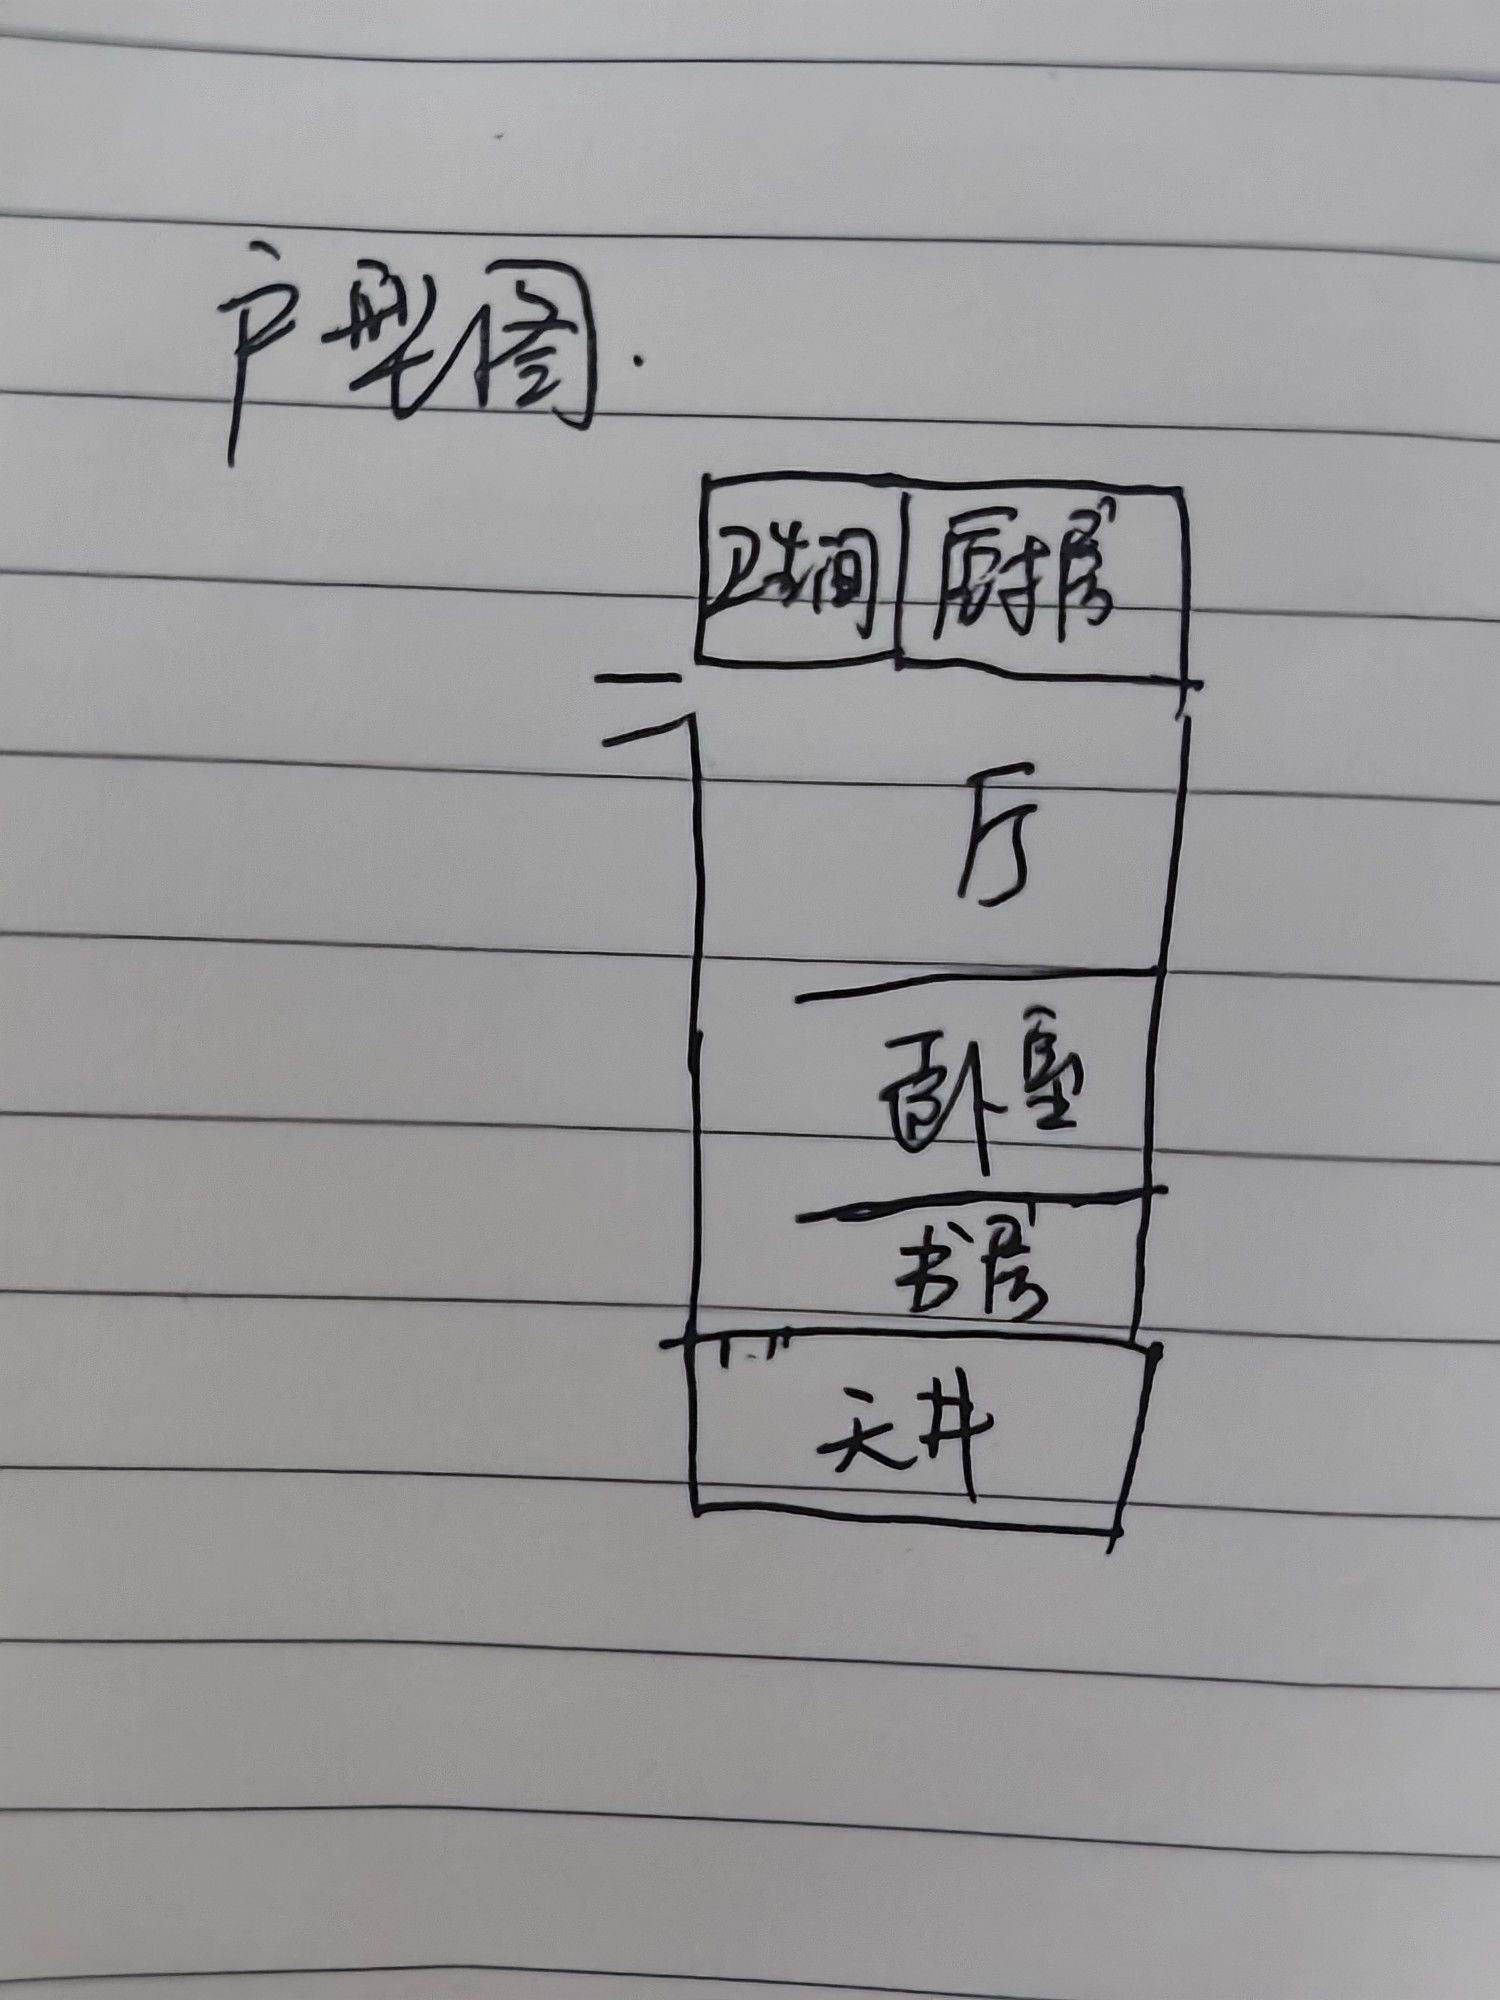 户型图.
卫生间 厨房
厅
卧室
书房
天井